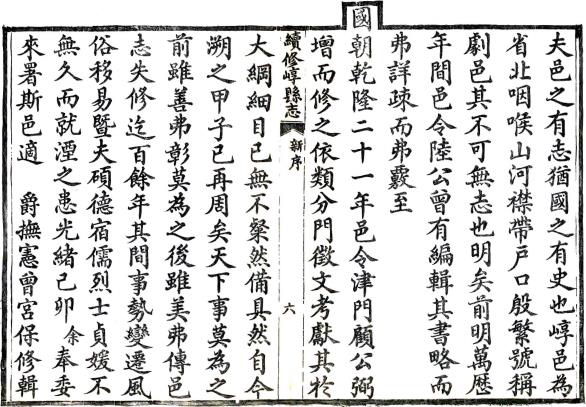 夫邑之有志猶國之有史也崞邑為
省北咽喉山河襟帶戶口殷繁號稱
劇邑其不可無志也明矣前明萬歷
年間邑令陸公曾有編輯其書略而
弗詳疎而弗覈至
國朝乾隆二十一年邑令津門顧公弼
增而修之依類分門徵文考獻其於
續修崞縣志 新序 六
大綱細目已無不粲然備具然自今
溯之甲子已再周矣天下事莫為之
前雖善弗彰莫為之後雖美弗傳邑
志失修迄百餘年其間事勢變遷風
俗移易暨夫碩德宿儒烈士貞媛不
無久而就湮之患光緒己卯余奉委
來署斯邑適 爵撫憲曾宮保修輯